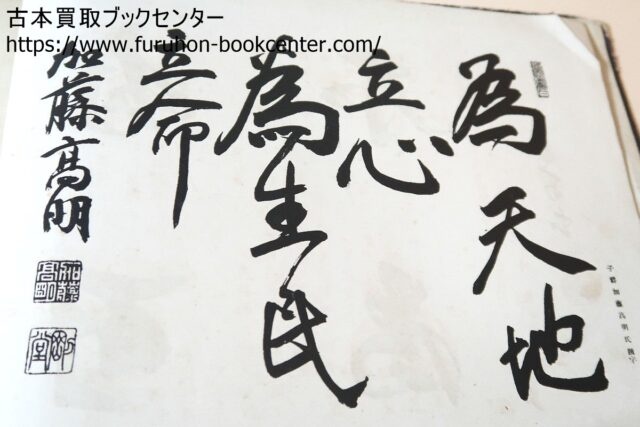 古本買取ブックセンター
https://www.furuhon-bookcenter.com/
為天地
立心
為生民
立命
加藤高明
加藤高明
剛堂
子爵加藤高明氏題字